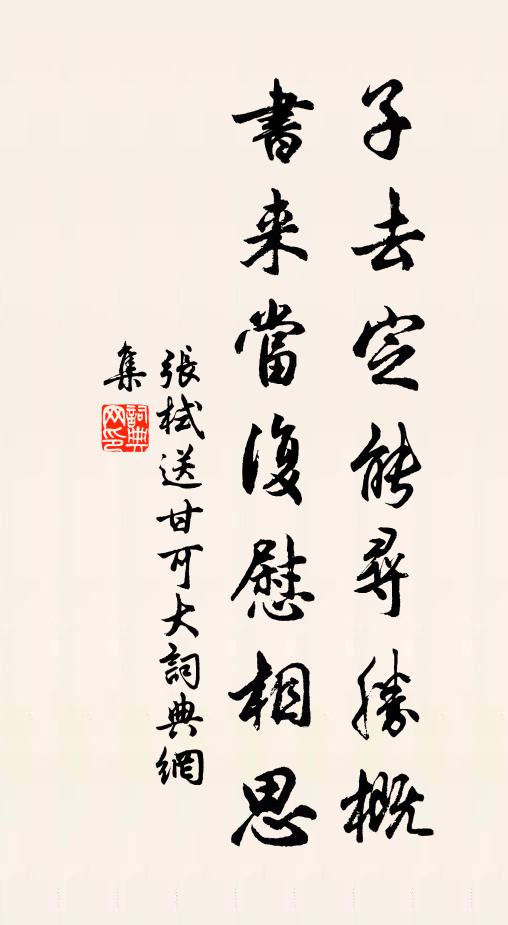 子去定能尋勝概
書来當復慰相思
張栻送甘可大詞典網
集
詞典網印